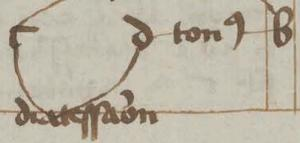 c d tonꝰ b
diatessaron